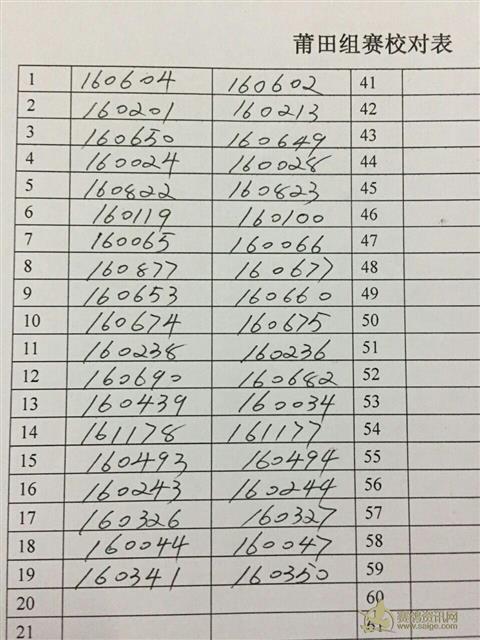 莆田组赛校对表
1 160604 160602 41
2 160201 160213 42
3 160650 160649 43
4 160024 160028 44
5 160822 160823 45
6 160119 160100 46
7 160065 160066 47
8 160877 160677 48
9 160653 160660 49
10 160674 160675 50
11 160238 160236 51
12 160690 160682 52
13 160439 160034 53
14 161178 161177 54
15 160493 160494 55
16 160243 160244 56
17 160326 160327 57
18 160044 160047 58
19 160341 160350 59
20 60
21 61
赛鸽资讯网
www.saige.com